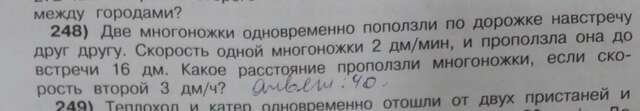 между городами?
248) Две многоножки одновременно поползли по дорожке навстречу
друг другу. Скорость одной многоножки 2 дм/мин, и проползла она до
встречи 16 дм. Какое расстояние проползли многоножки, если ско-
рость второй 3 дм/ч? ответ: 40.
249) Теплоход и катер одновременно отошли от двух пристаней и